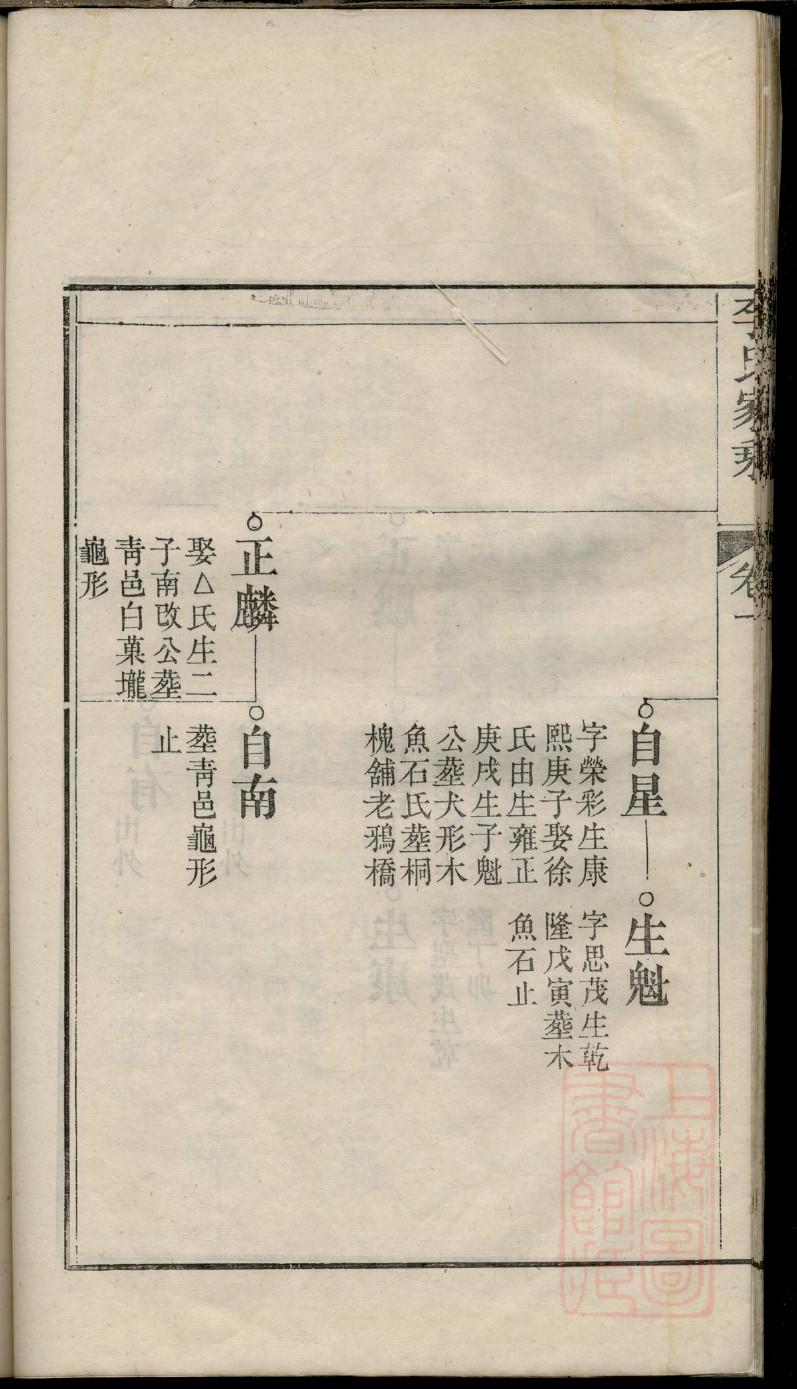 李氏家乘
卷一
自星
字榮彩生康
熙庚子娶徐
氏由生雍正
庚戌生子魁
公塟犬形木
魚石氏塟桐
槐舖老鴉橋
生魁
字思茂生乾
隆戊寅塟木
魚石止
正麟
娶△氏生二
子南改公塟
靑邑白菓壠
龜形
自南
塟靑邑龜形
止
上海圖
書館藏